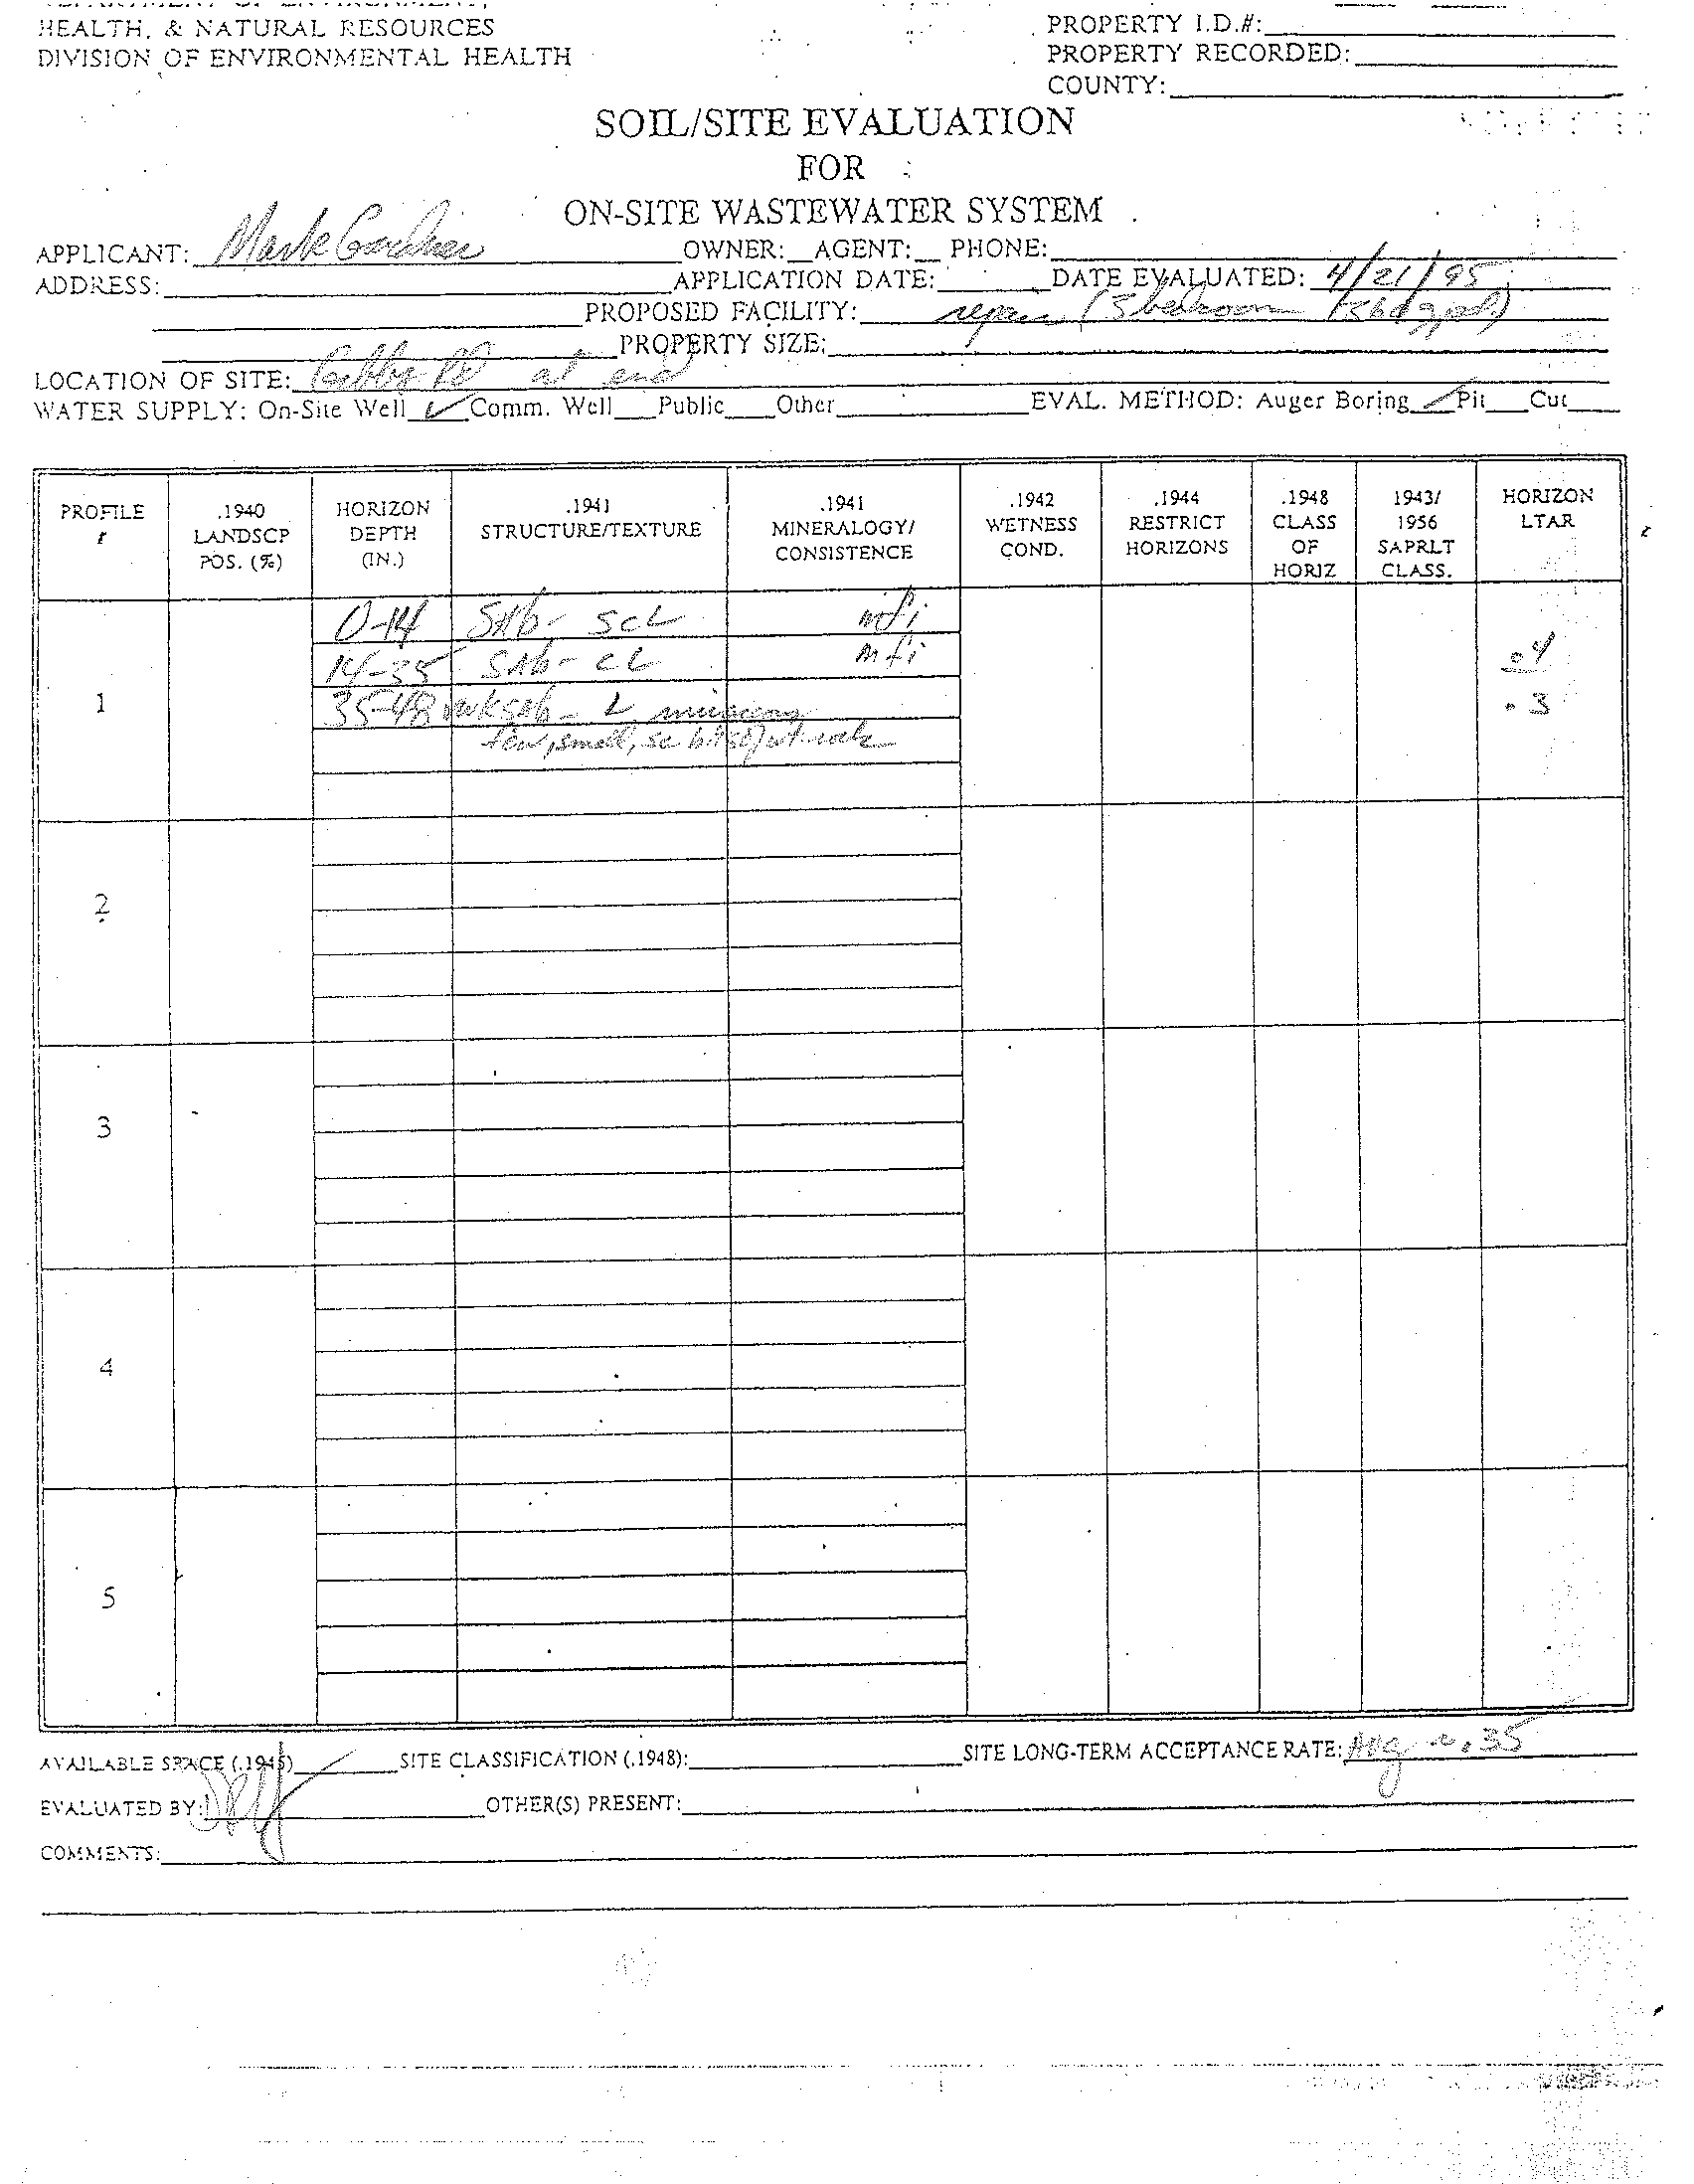 HEALTH, & NATURAL RESOURCES
DIVISION OF ENVIRONMENTAL HEALTH
PROPERTY I.D.#:
PROPERTY RECORDED:
COUNTY:
SOIL/SITE EVALUATION
FOR
ON-SITE WASTEWATER SYSTEM
APPLICANT: Mark Gardner OWNER: AGENT: PHONE:
ADDRESS: APPLICATION DATE: DATE EVALUATED: 4/21/95
PROPOSED FACILITY: repair (3 bedroom 360 gpd)
PROPERTY SIZE:
LOCATION OF SITE: Rd at end
WATER SUPPLY: On-Site Well ✓ Comm. Well Public Other EVAL. METHOD: Auger Boring ✓ Pit Cut
PROFILE #
.1940 LANDSCP POS. (%)
HORIZON DEPTH (IN.)
.1941 STRUCTURE/TEXTURE
.1941 MINERALOGY/ CONSISTENCE
.1942 WETNESS COND.
.1944 RESTRICT HORIZONS
.1948 CLASS OF HORIZ
.1943/ 1956 SAPRLT CLASS.
HORIZON LTAR
1
0-14 SAb- SCL mfi
14-35 SAb- CL mfi .4
35-48 wk SAb - L .3
few, small, sc bits of wt rock
2
3
4
5
AVAILABLE SPACE (.1945) ✓ SITE CLASSIFICATION (.1948): SITE LONG-TERM ACCEPTANCE RATE: Avg ~ .35
EVALUATED BY: OTHER(S) PRESENT:
COMMENTS: